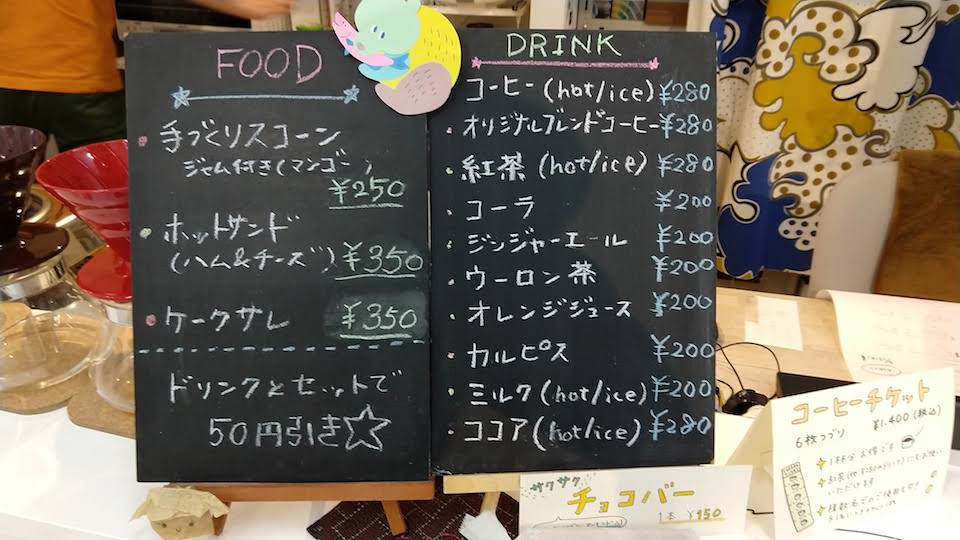 FOOD
手づくりスコーン
ジャム付き(マンゴー)
¥250
ホットサンド
(ハム&チーズ) ¥350
ケークサレ ¥350
ドリンクとセットで
50円引き☆
DRINK
コーヒー(hot/ice) ¥280
オリジナルブレンドコーヒー ¥280
紅茶 (hot/ice) ¥280
コーラ ¥200
ジンジャーエール ¥200
ウーロン茶 ¥200
オレンジジュース ¥200
カルピス ¥200
ミルク(hot/ice) ¥200
ココア(hot/ice) ¥280
サクサク
チョコバー
1本 ¥150
コーヒーチケット
6枚つづり ¥1,400(税込)
1杯分お得です
いただけます